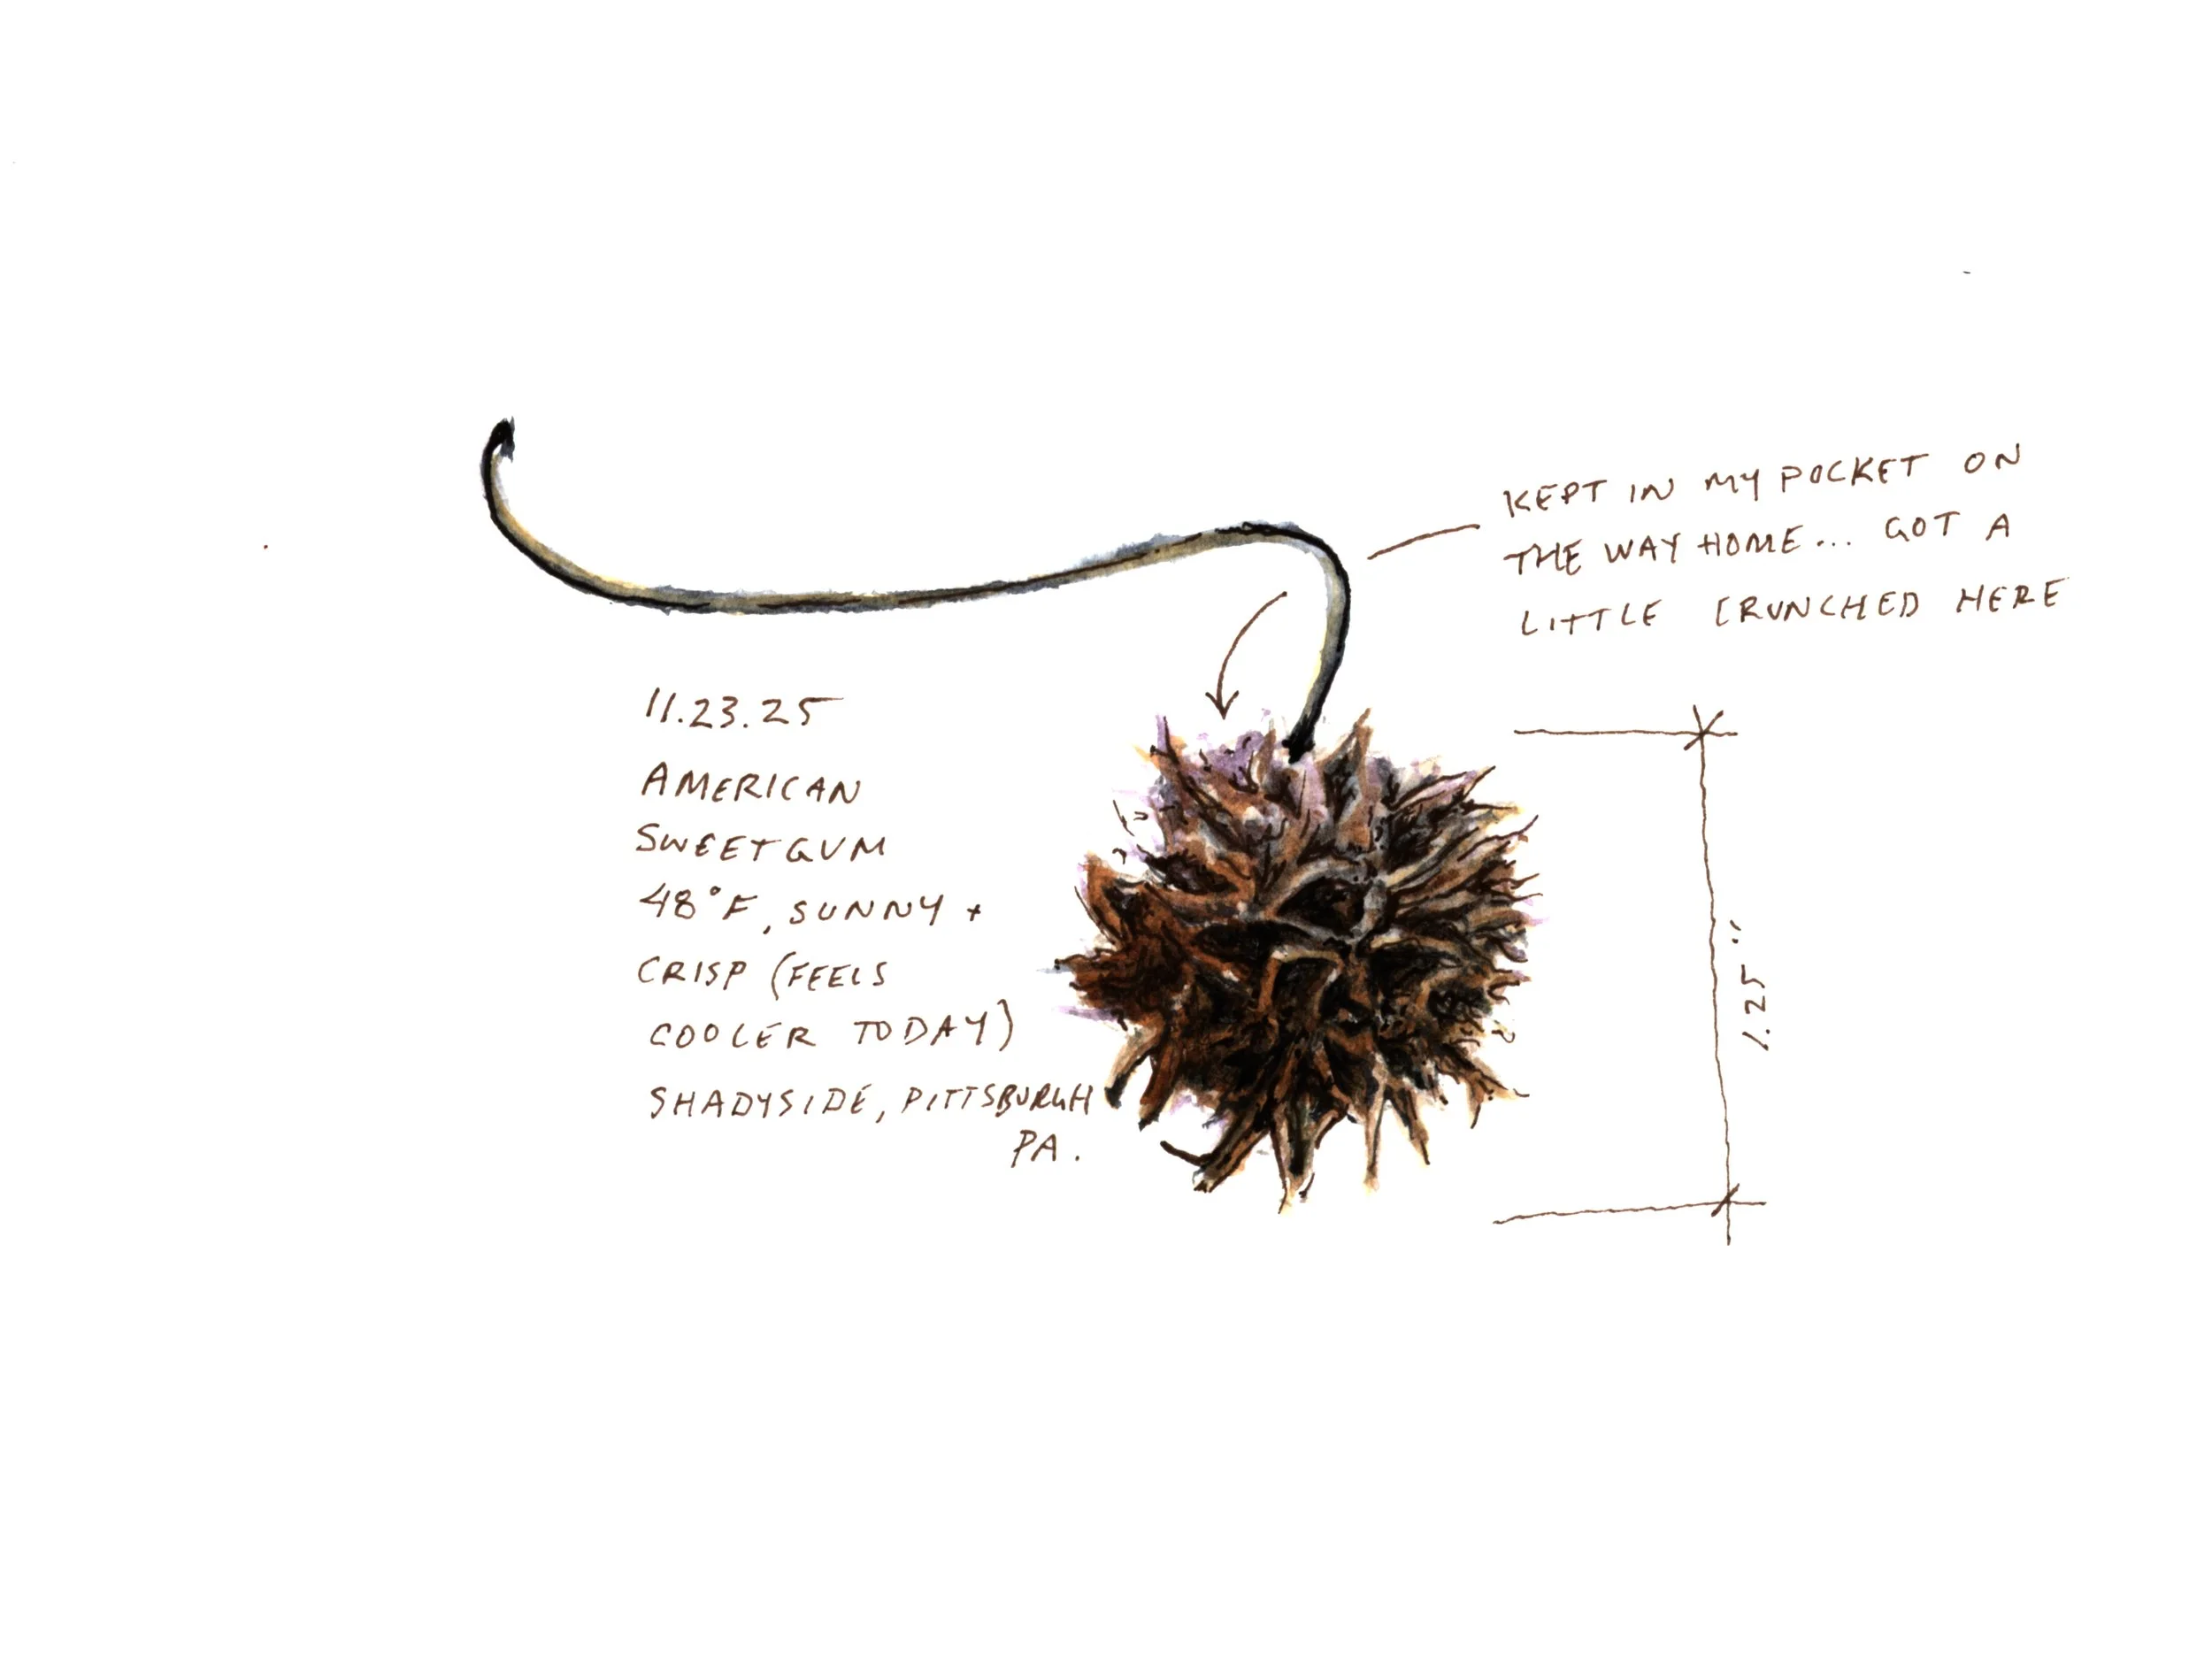 KEPT IN MY POCKET ON
THE WAY HOME... GOT A
LITTLE CRUNCHED HERE
11.23.25
AMERICAN
SWEETGUM
48°F, SUNNY +
CRISP (FEELS
COOLER TODAY)
SHADYSIDE, PITTSBURGH
PA.
1.25"